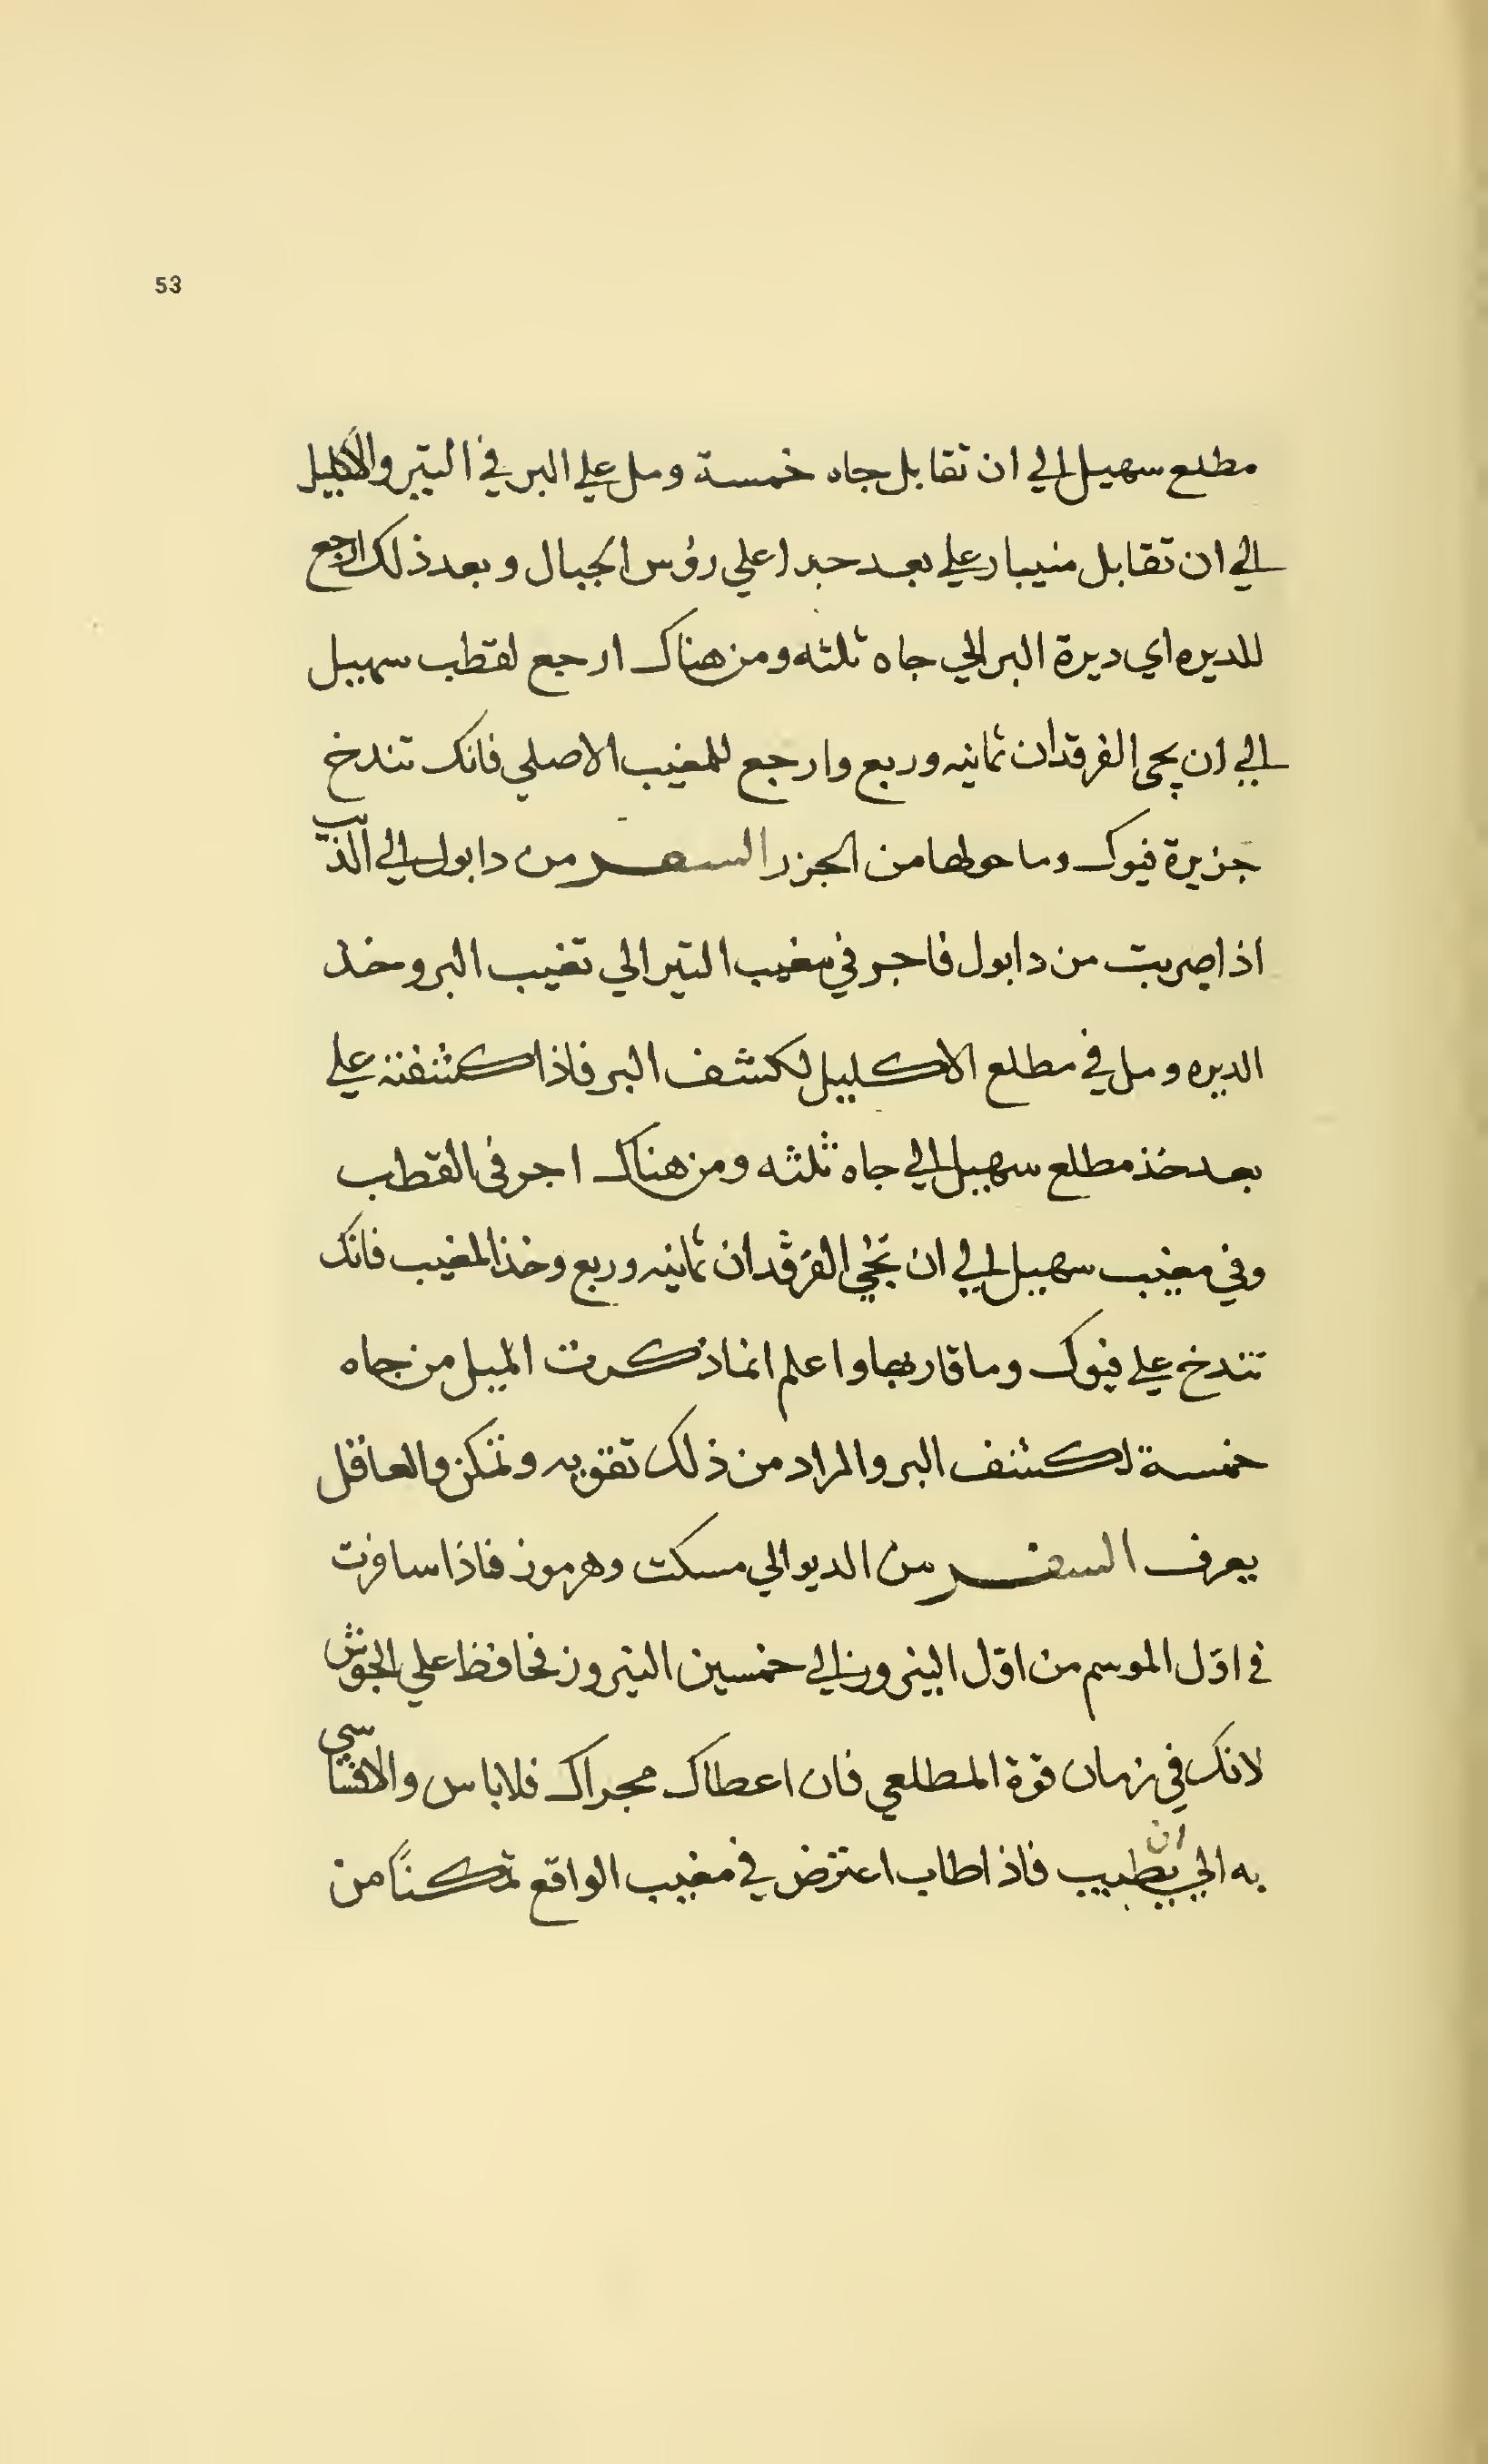 53
مطلع سهيل الي ان تقابل جاه خمسة ومل علي البر في التير والاكليل
الي ان تقابل منيبار علي بعد جدا علي رؤس الجبال وبعد ذلك ارجع
للديره اي ديرة البر الي جاه ثلثه ومن هناك ارجع لقطب سهيل
الي ان يجي الفرقدان ثمانيه وربع وارجع للمغيب الاصلي فانك تندخ
جزيرة فيوك وما حولها من الجزر السفر من دابول الي الذيب
اذا صريت من دابول فاجر في مغيب التير الي تغيب البر وخذ
الديره ومل في مطلع الاكليل لكشف البر فاذا كشفته علي
بعد خذ مطلع سهيل الي جاه ثلثه ومن هناك اجر في القطب
وفي مغيب سهيل الي ان تجي الفرقدان ثمانيه وربع وخذ المغيب فانك
تندخ علي فيوك وما قاربها واعلم انما ذكرت الميل من جاه
خمسة لكشف البر والمراد من ذلك تقويه وتمكن والعاقل
يعرف السفر من الديو الي مسكت وهرموز فاذا سافرت
في اوّل الموسم من اوّل النيروز الي خمسين النيروز فحافظ علي الجوش
لانك في زمان قوة المطلعي فان اعطاك مجراك فلا باس والا فتاسي
به الي ان يطيب فاذا طاب اعترض في مغيب الواقع تمكنًا من